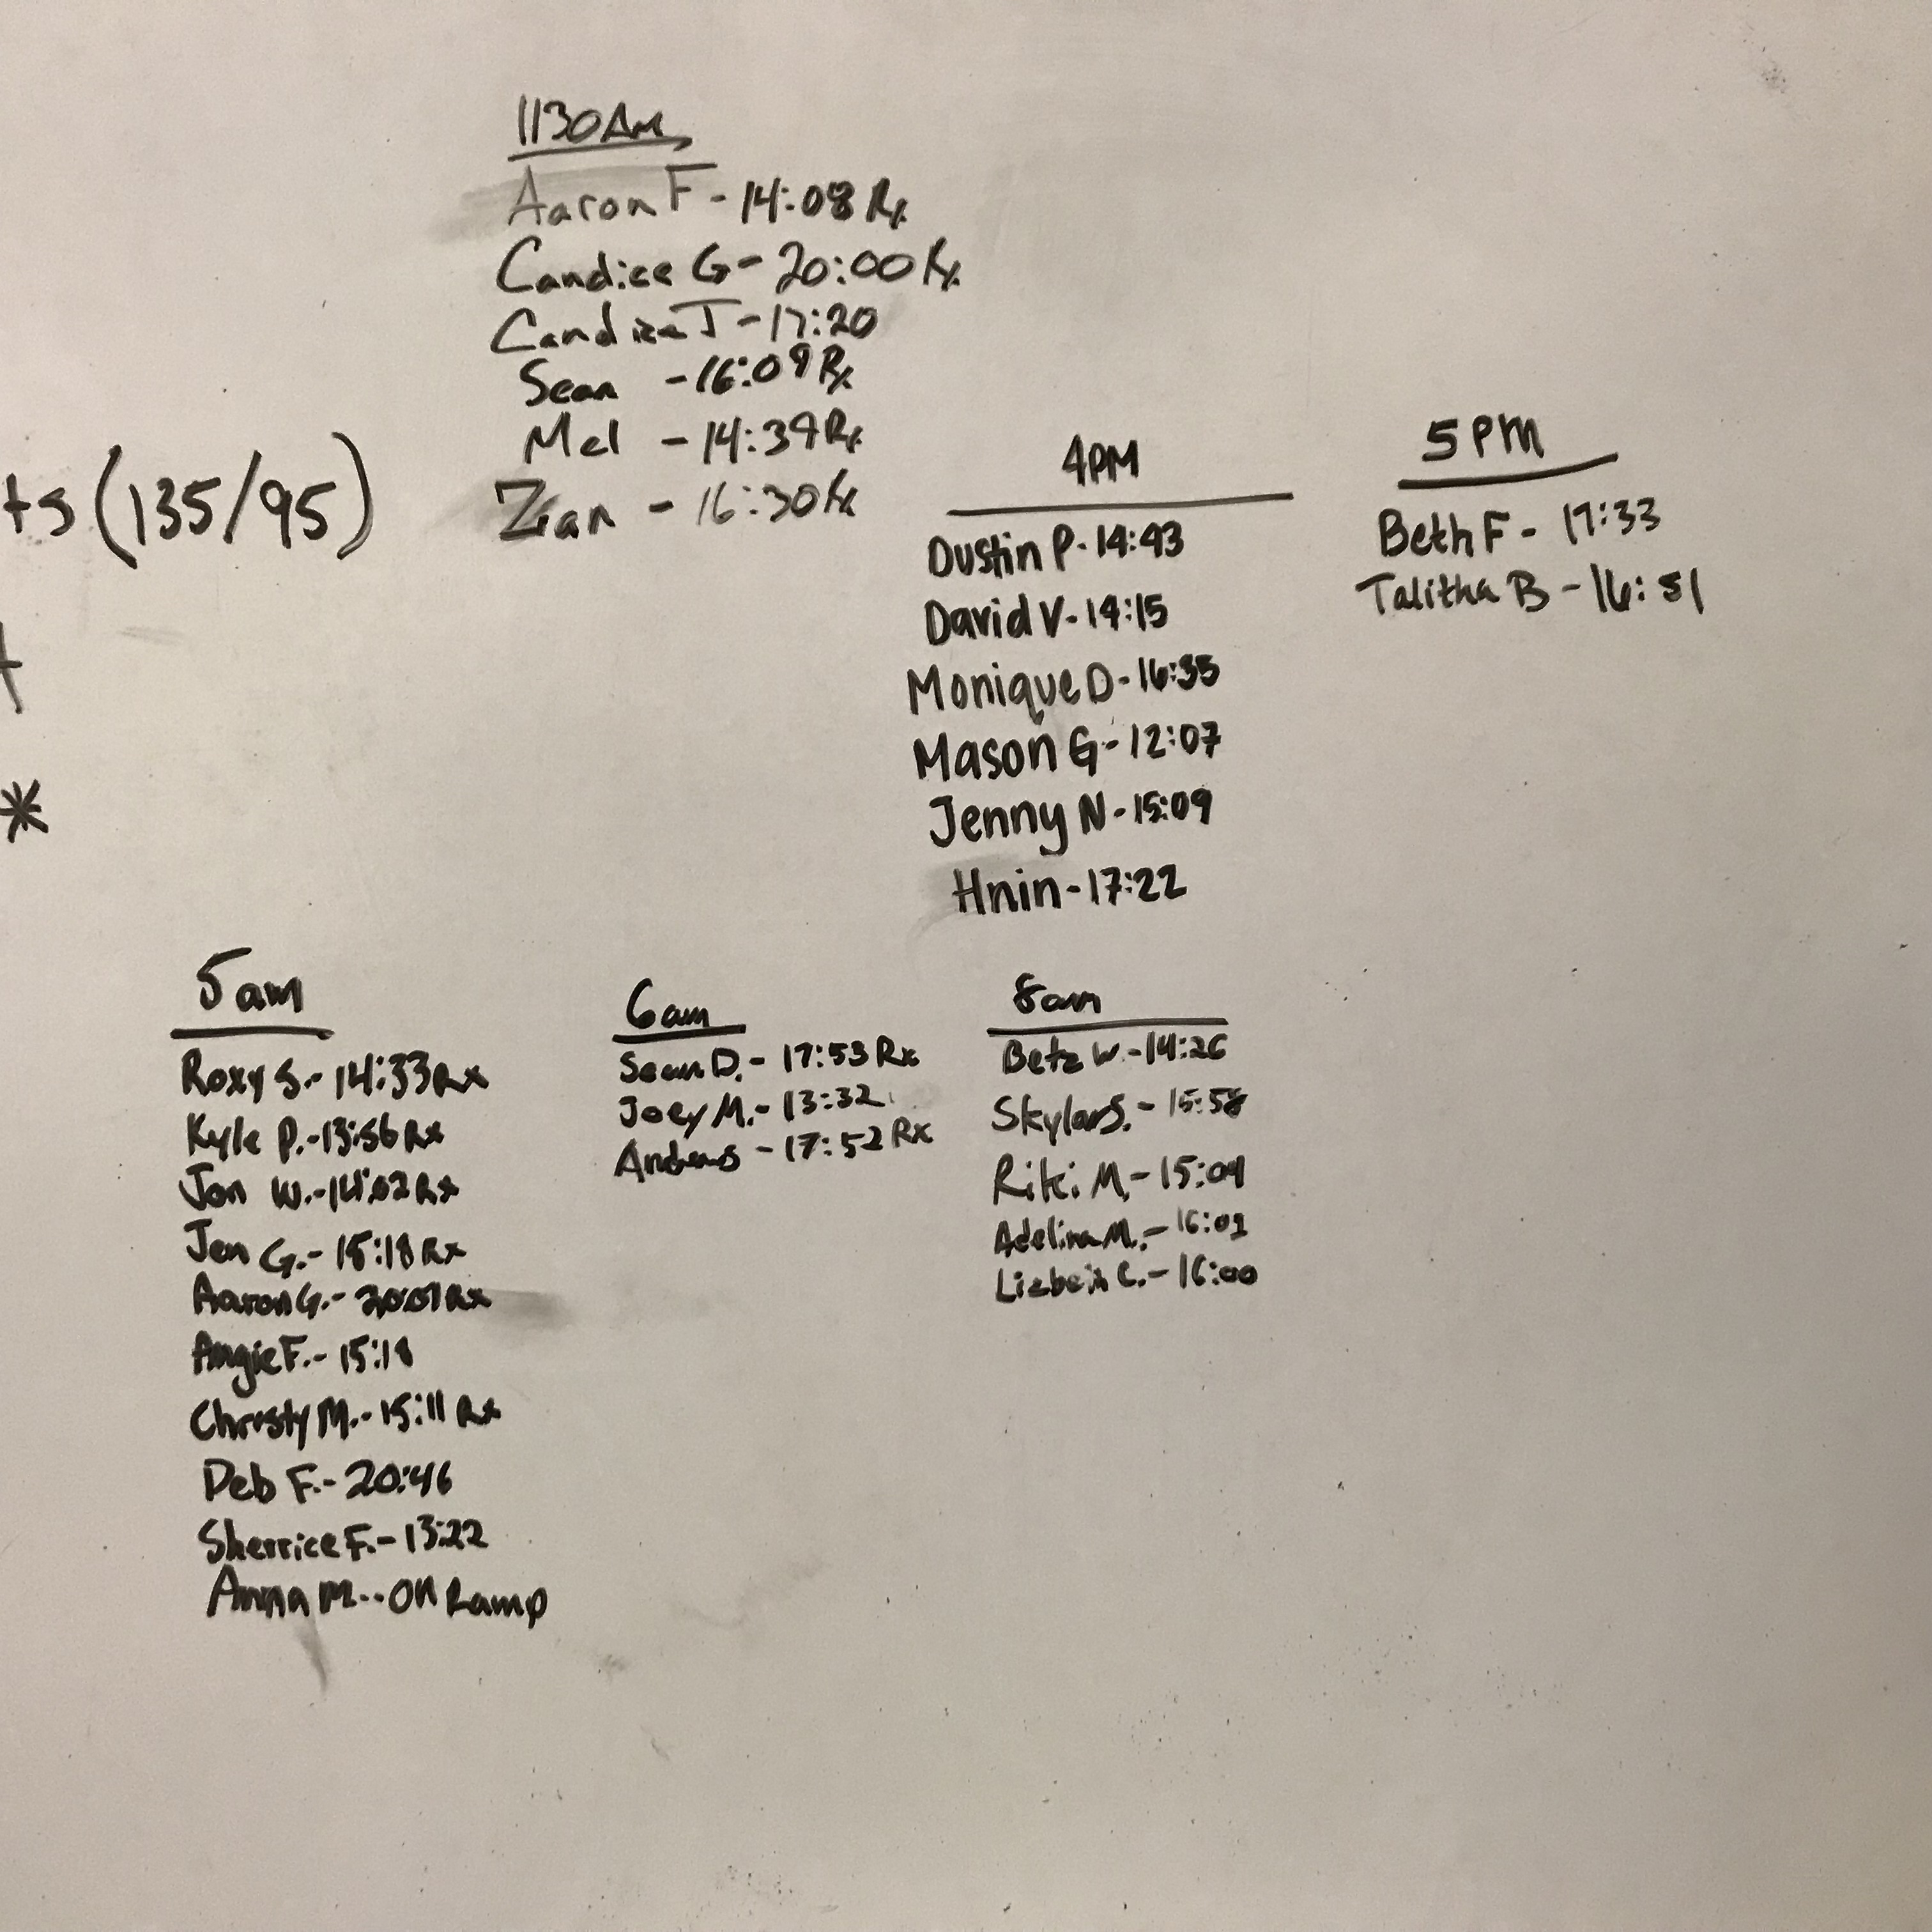 1130Am
Aaron F - 14:08 Rx
Candice G - 20:00 Rx
Candice J - 17:20
Sean - 16:09 Rx
Mel - 14:39 Rx
Zian - 16:30 Rx
ts (135/95)
*
4PM
Dustin P - 14:43
David V - 14:15
Monique D - 16:35
Mason G - 12:07
Jenny N - 15:09
Hnin - 17:22
5PM
Beth F - 17:33
Talitha B - 16:51
5am
Roxy S. - 14:33 Rx
Kyle P. - 13:56 Rx
Jon W. - 14:02 Rx
Jen G. - 15:18 Rx
Aaron G. - 20:01 Rx
Angie F. - 15:18
Christy M. - 15:11 Rx
Deb F. - 20:46
Sherrice F. - 13:22
Anna M. - On Ramp
6am
Sean D. - 17:53 Rx
Joey M. - 13:32
- 17:52 Rx
8am
Betz W. - 14:26
Skylar S. - 15:58
Riki M. - 15:04
Adelina M. - 16:01
C. - 16:00